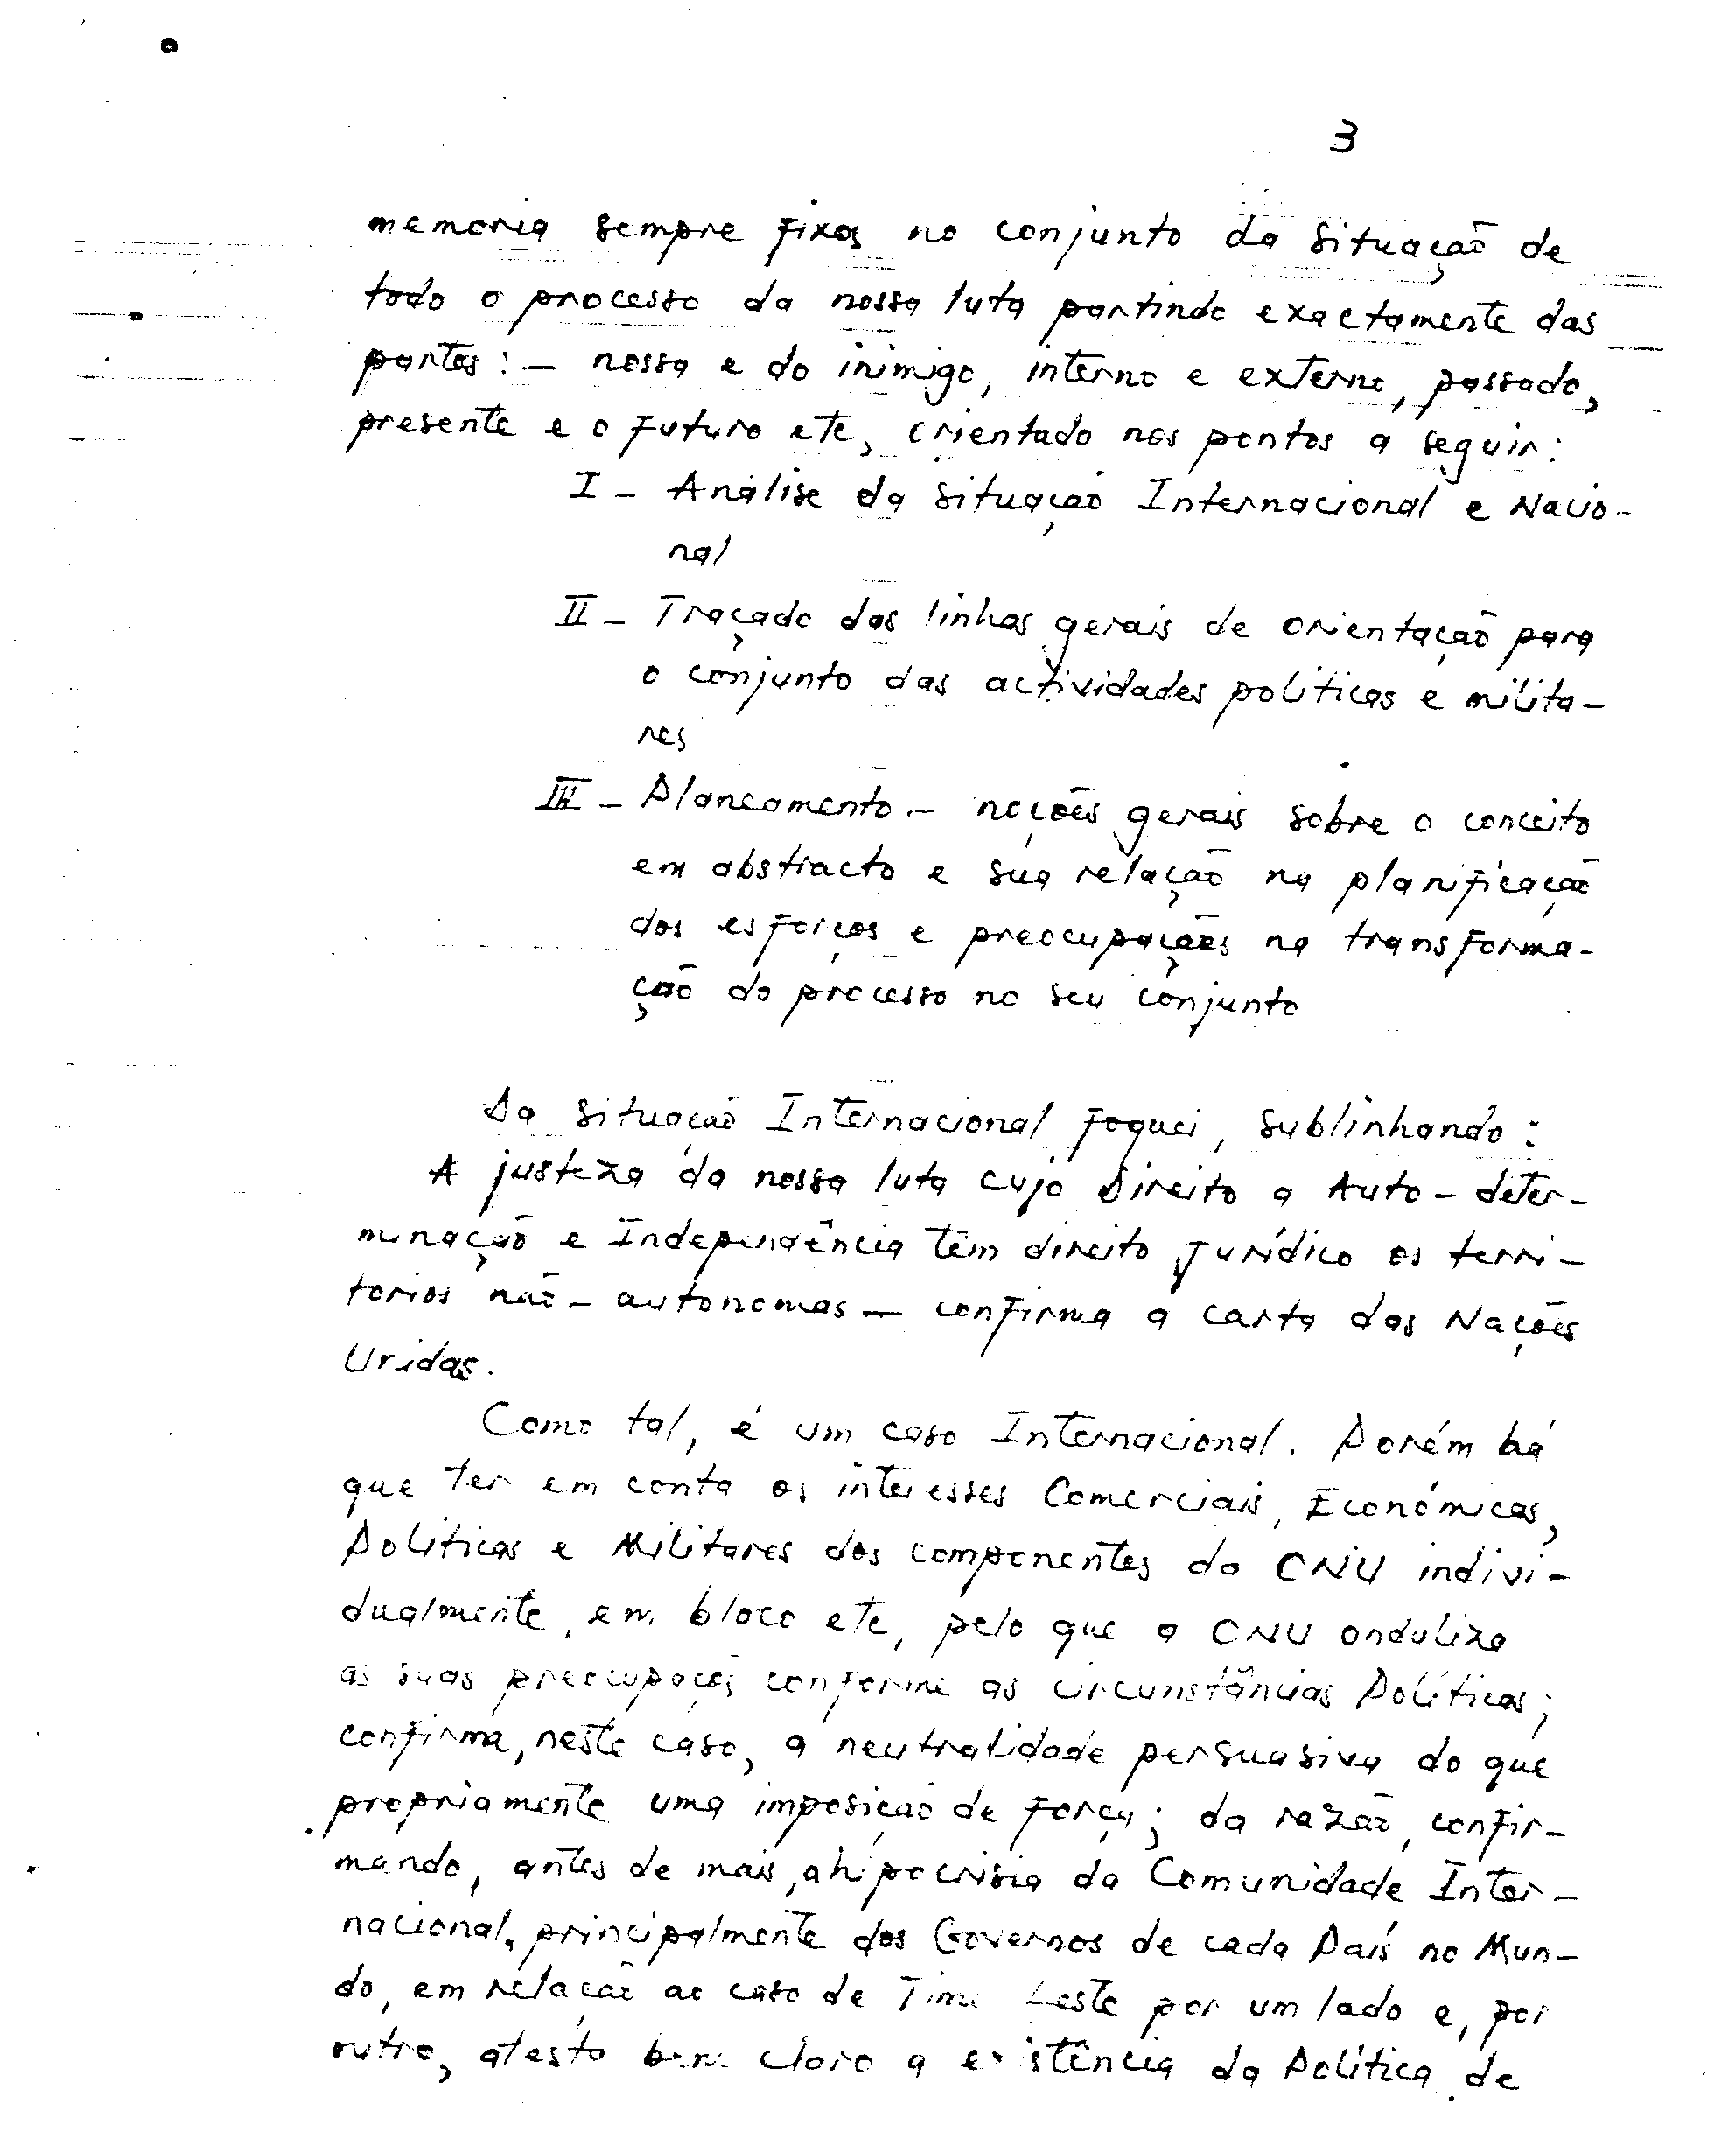 3
memoria sempre fixos no conjunto da situação de
todo o processo da nossa luta partindo exactamente das
partes : — nossa e do inimigo, interno e externo, passado,
presente e o futuro etc, orientado nos pontos a seguir :
I - Análise da situação Internacional e Nacio-
nal
II - Traçado das linhas gerais de orientação para
o conjunto das actividades politicas e milita-
res
III - Planeamento - noções gerais sobre o conceito
em abstracto e sua relação na planificação
dos esforços e preocupações na transforma-
ção do processo no seu conjunto
Da situação Internacional foquei, sublinhando :
A justeza da nossa luta cujo Direito a Auto-deter-
minação e Independência têm direito jurídico os terri-
torios não-autonomas — confirma a carta das Nações
Unidas.
Como tal, é um caso Internacional. Porém há
que ter em conta os interesses Comerciais, Económicos,
Politicos e Militares dos componentes da CNU indivi-
dualmente, em bloco etc, pelo que a CNU onduliza
as suas preocupaçẽs conforme as circunstâncias Políticas;
confirma, neste caso, a neutralidade persuasiva do que
propriamente uma imposição de força; da razão, confir-
mando, antes de mais, a hipocrisia da Comunidade Inter-
nacional, principalmente dos Governos de cada País no Mun-
do, em relação ao caso de Timo Leste por um lado e, por
outro, atesta bem claro a existência da Política de